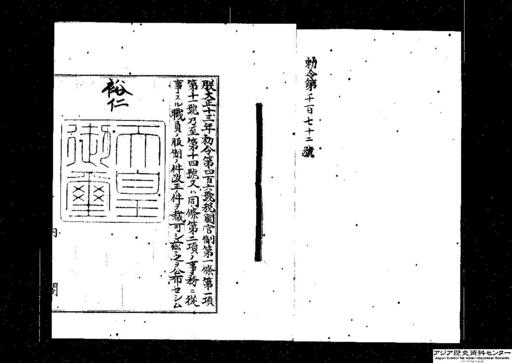 勅令第千百七十二號
朕大正十三年勅令第四百六號税關官制第一條第一項
第十一號乃至第十四號又ハ同條第二項ノ事務ニ從
事スル職員ノ服制ノ件改正ノ件ヲ裁可シ茲ニ之ヲ公布セシム
裕仁
天皇
御璽
内閣
アジア歴史資料センター
Japan Center for Asian Historical Records